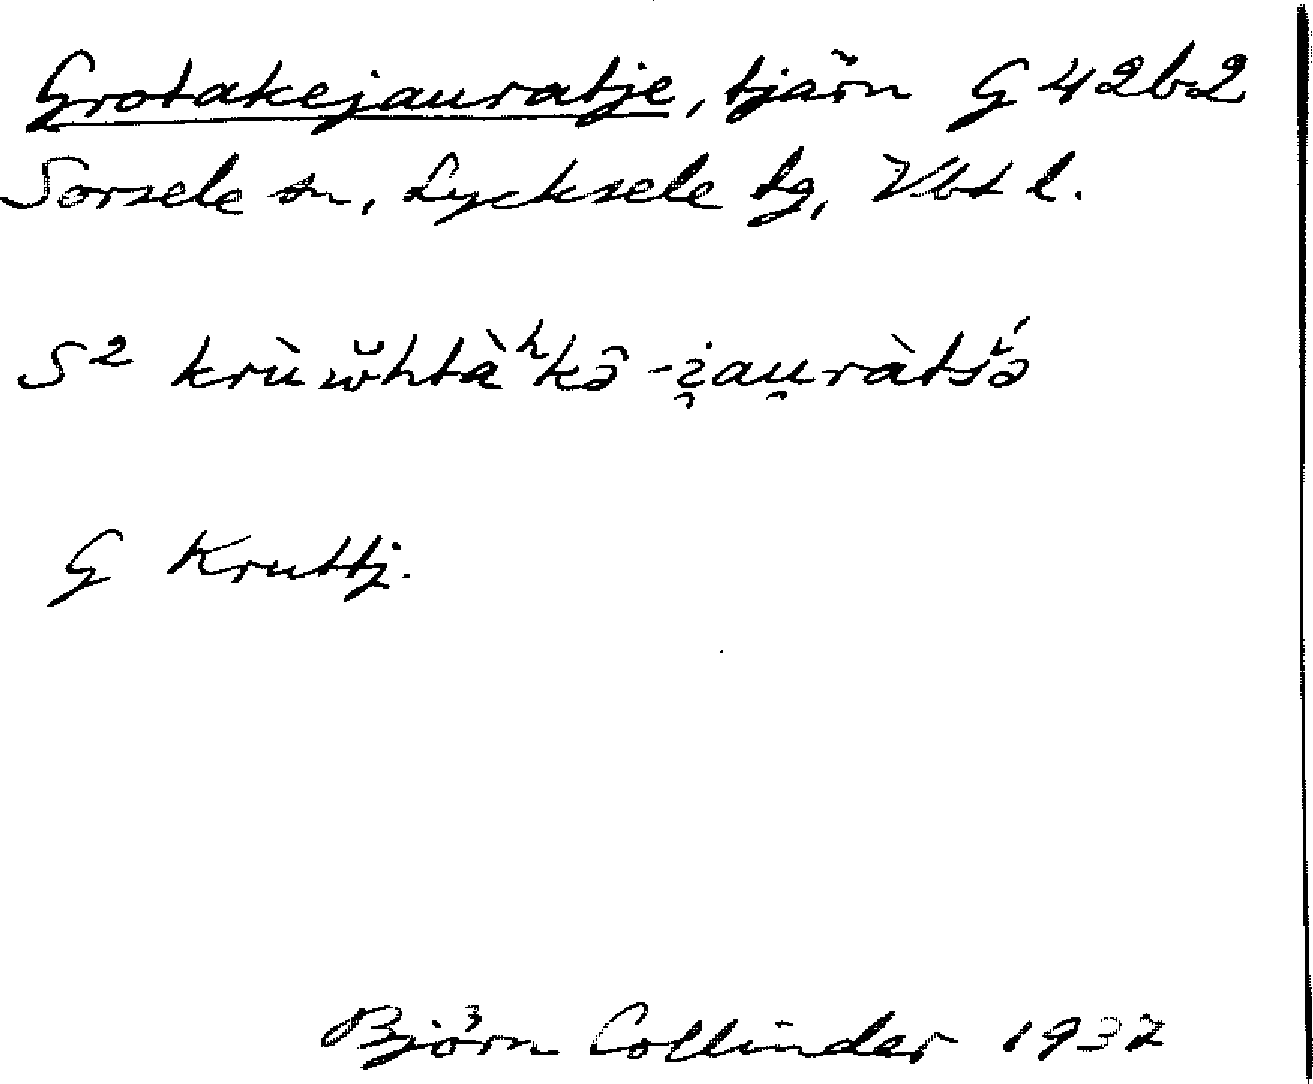 Grotakejauratje, tjärn G 42b2
Sorsele sn, Lycksele lg, Vbtl.
S² krùw̆htàʰkə̂ -i̯au̯ràtśə
G Kruttj.
Björn Collinder 1937